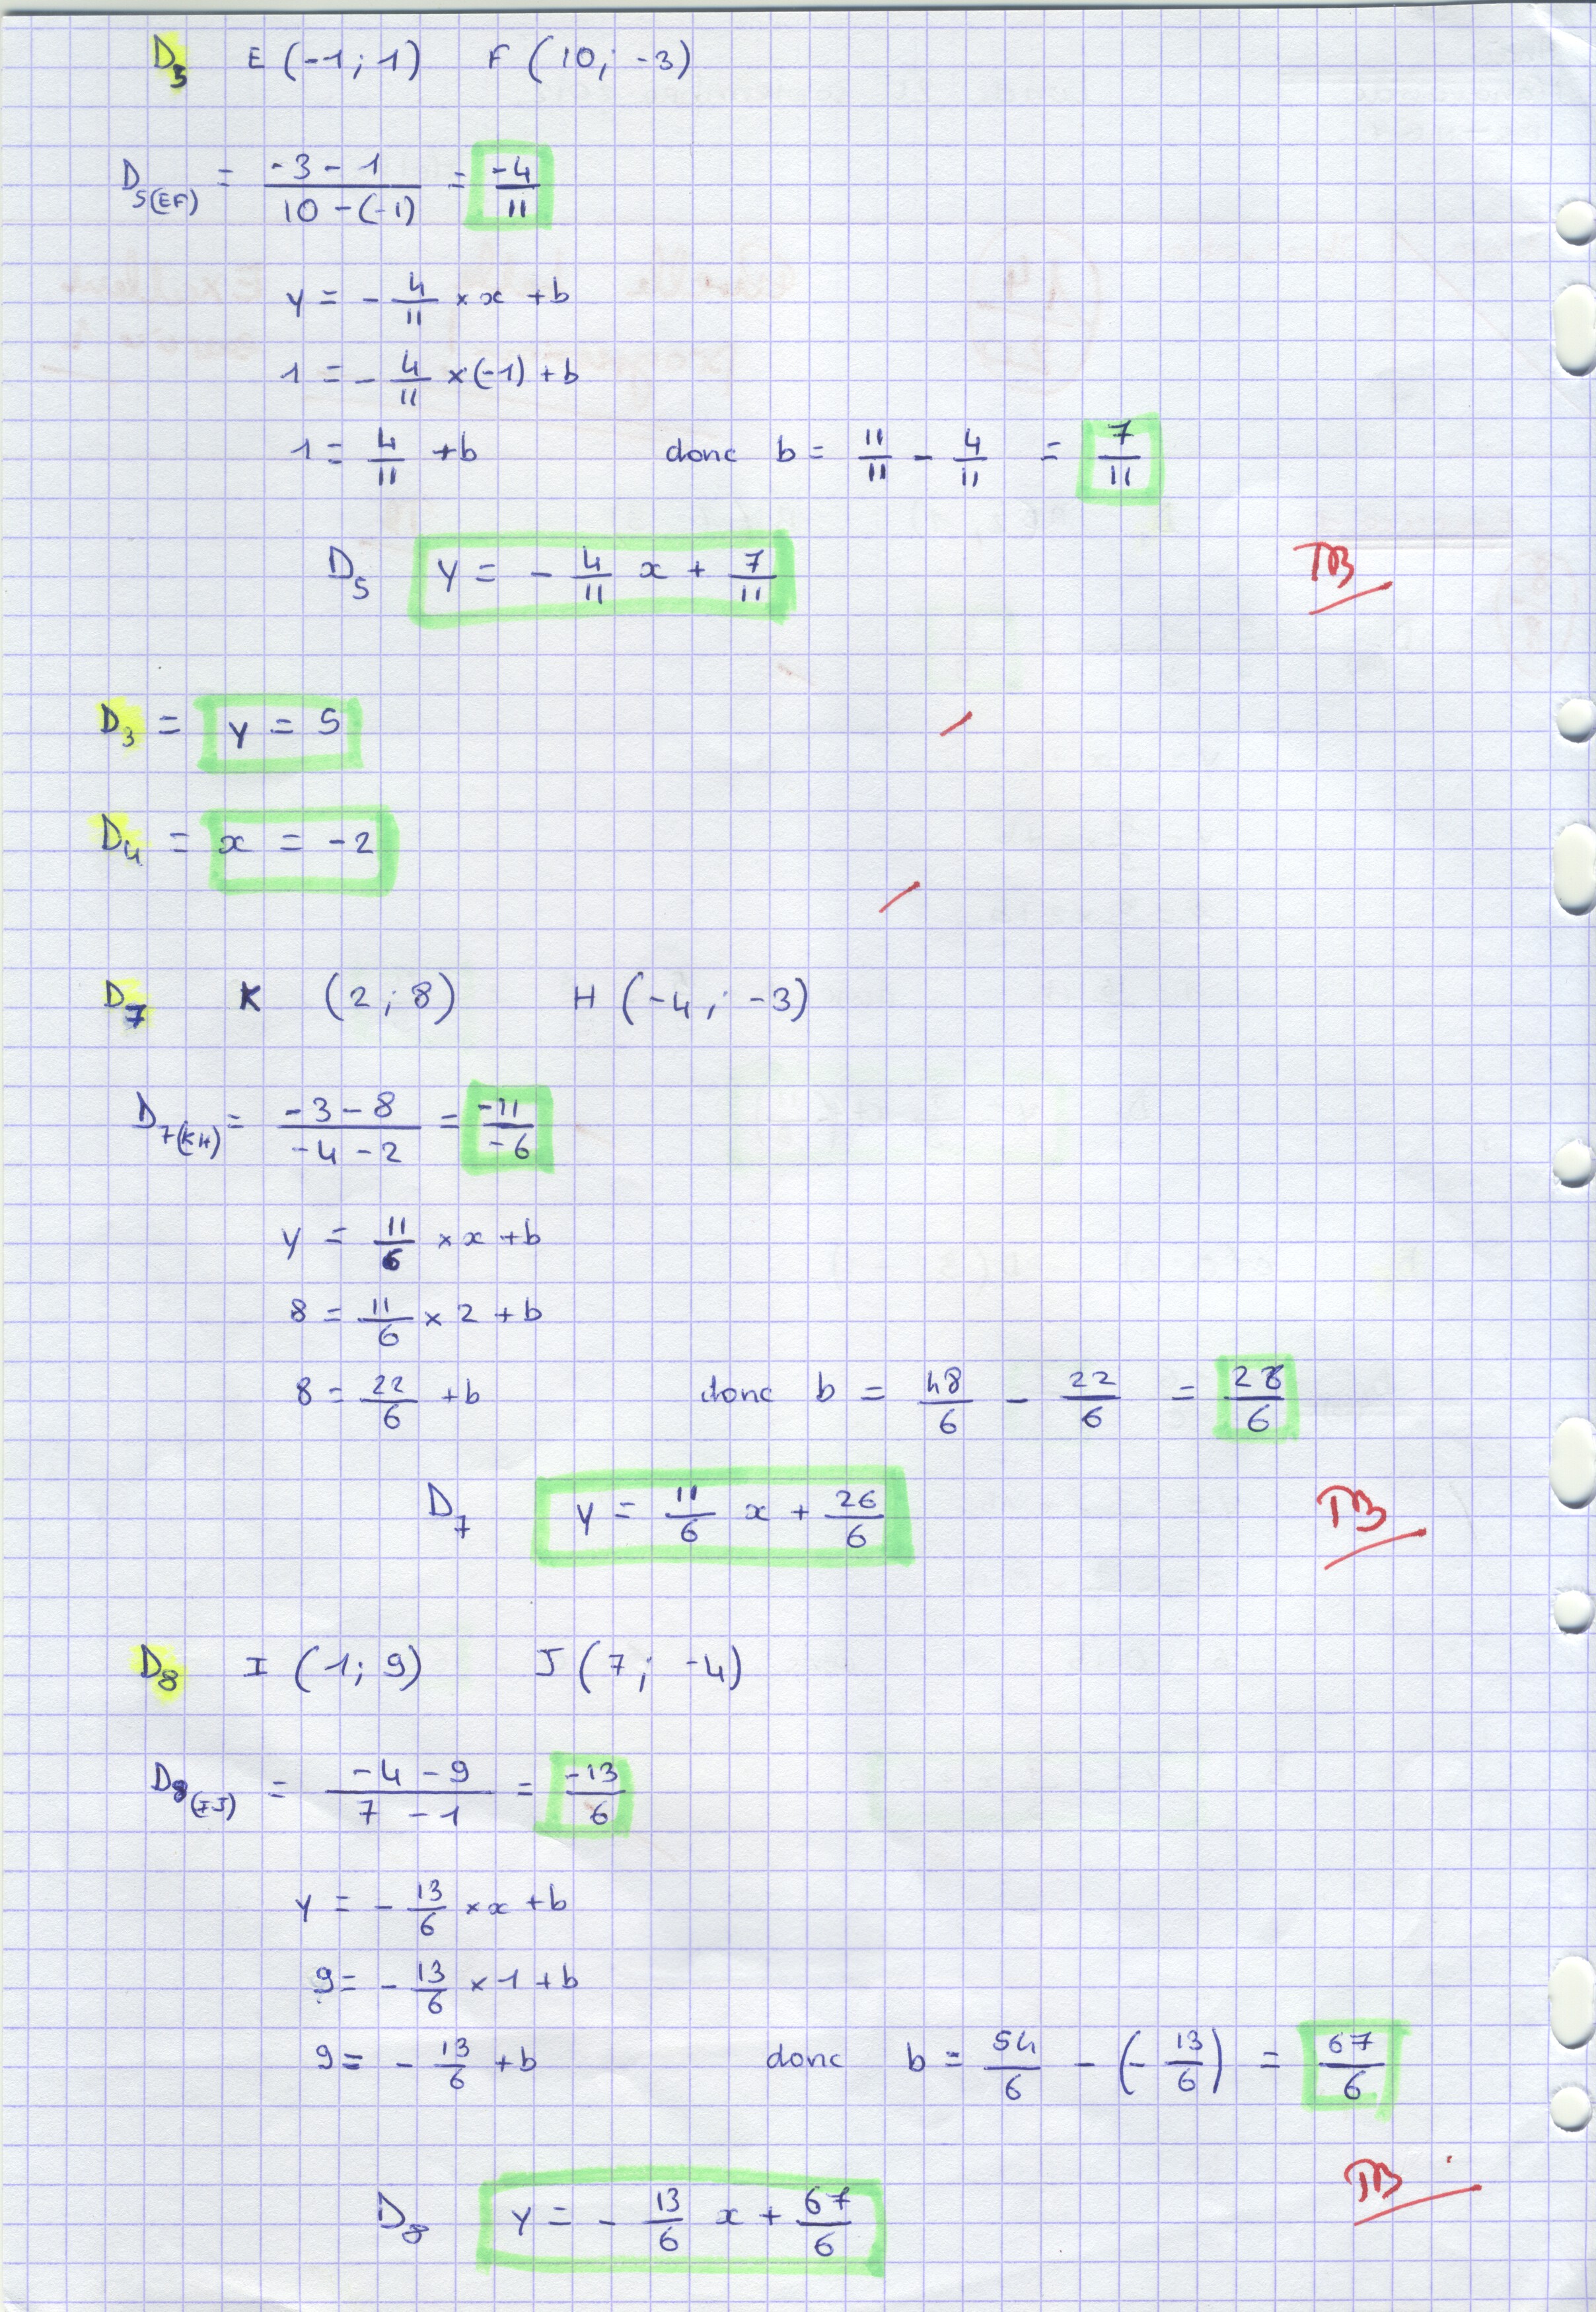 D5 E (-1 ; 1) F (10 ; -3)
D5(EF) = (-3 - 1)/(10 - (-1)) = -4/11
y = - 4/11 × x + b
1 = - 4/11 × (-1) + b
1 = 4/11 + b donc b = 11/11 - 4/11 = 7/11
D5 y = - 4/11 x + 7/11
TB
D3 = y = 5
D4 = x = -2
D7 K (2 ; 8) H (-4 ; -3)
D7(KH) = (-3 - 8)/(-4 - 2) = -11/-6
y = 11/6 × x + b
8 = 11/6 × 2 + b
8 = 22/6 + b donc b = 48/6 - 22/6 = 26/6
D7 y = 11/6 x + 26/6
TB
D8 I (1 ; 9) J (7 ; -4)
D8(IJ) = (-4 - 9)/(7 - 1) = -13/6
y = - 13/6 × x + b
9 = - 13/6 × 1 + b
9 = - 13/6 + b donc b = 54/6 - (- 13/6) = 67/6
TB
D8 y = - 13/6 x + 67/6